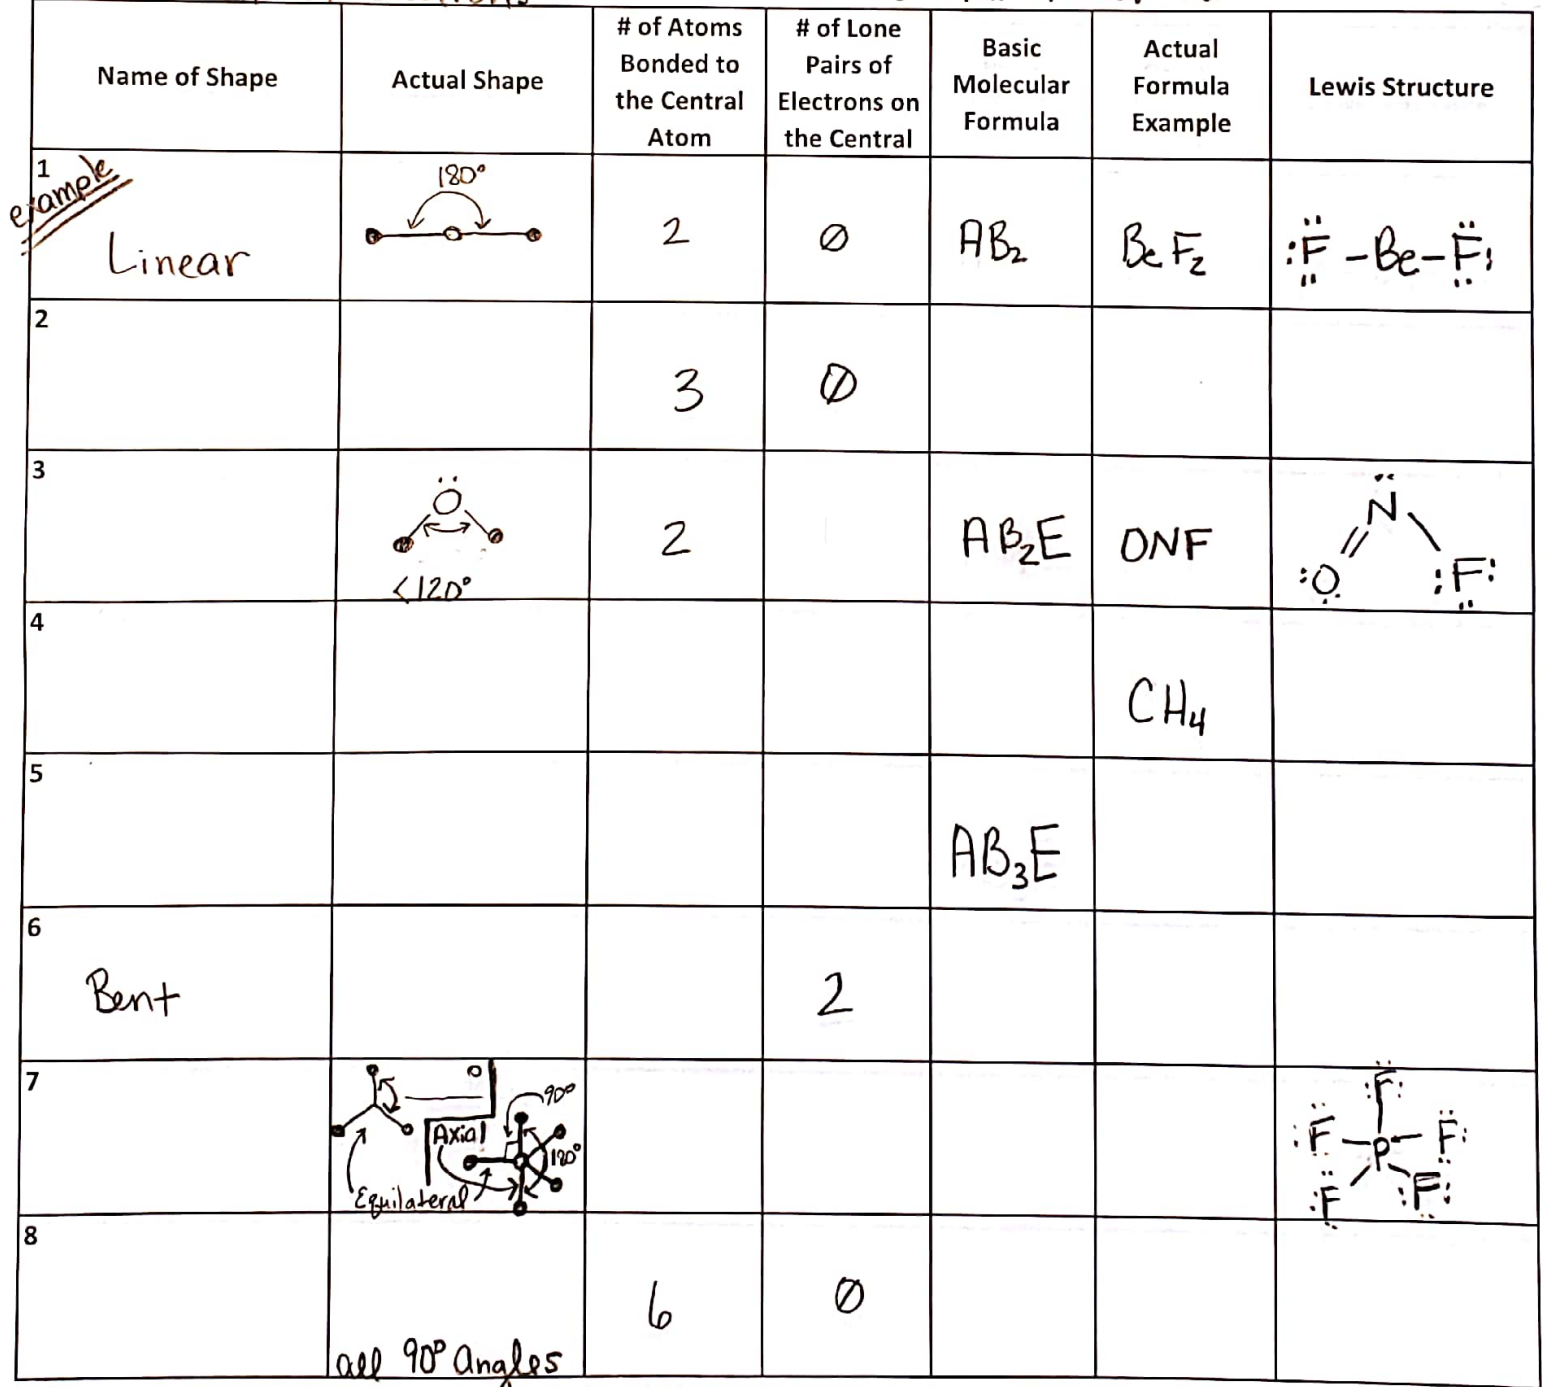 Name of Shape
Actual Shape
# of Atoms
Bonded to
the Central
Atom
# of Lone
Pairs of
Electrons on
the Central
Basic
Molecular
Formula
Actual
Formula
Example
Lewis Structure
1
example
Linear
180°
2
0
AB₂
BeF₂
:F̤̈ – Be – F̤̈:
2
3
0
3
Ö
<120°
2
AB₂E
ONF
N̈
:O̤ :F̤:
4
CH₄
5
AB₃E
6
Bent
2
7
90°
Axial
120°
Equilateral
:F̈:
:F̈ – P – F̤̈:
:F̤̈ :F̤̈:
8
all 90° Angles
6
0